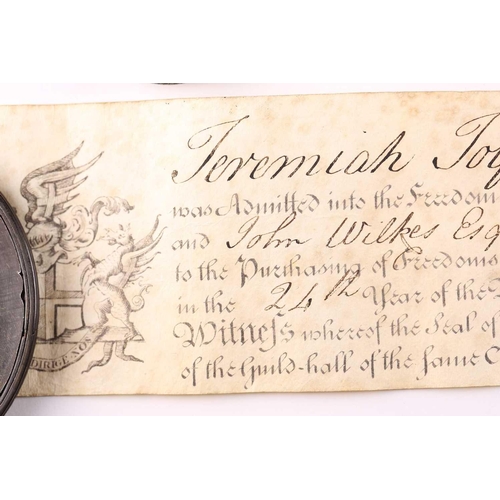 Jeremiah
was Admitted into the Freedom
and John Wilkes Esq
to the Purchasing of Freedoms
in the 24th Year of the
Witness whereof the Seal of
of the Guild-hall of the same C
DIRIGE NOS